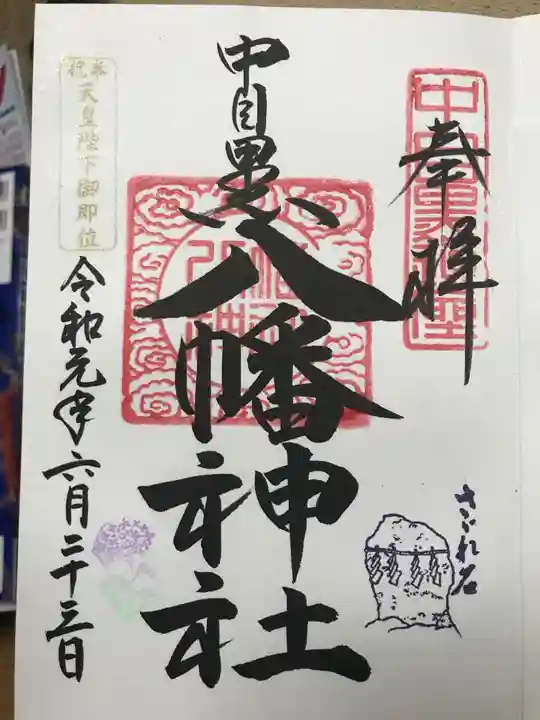 奉拝
さゞれ石
中目黒
八幡神社
奉祝
天皇陛下御即位
令和元年六月二十三日